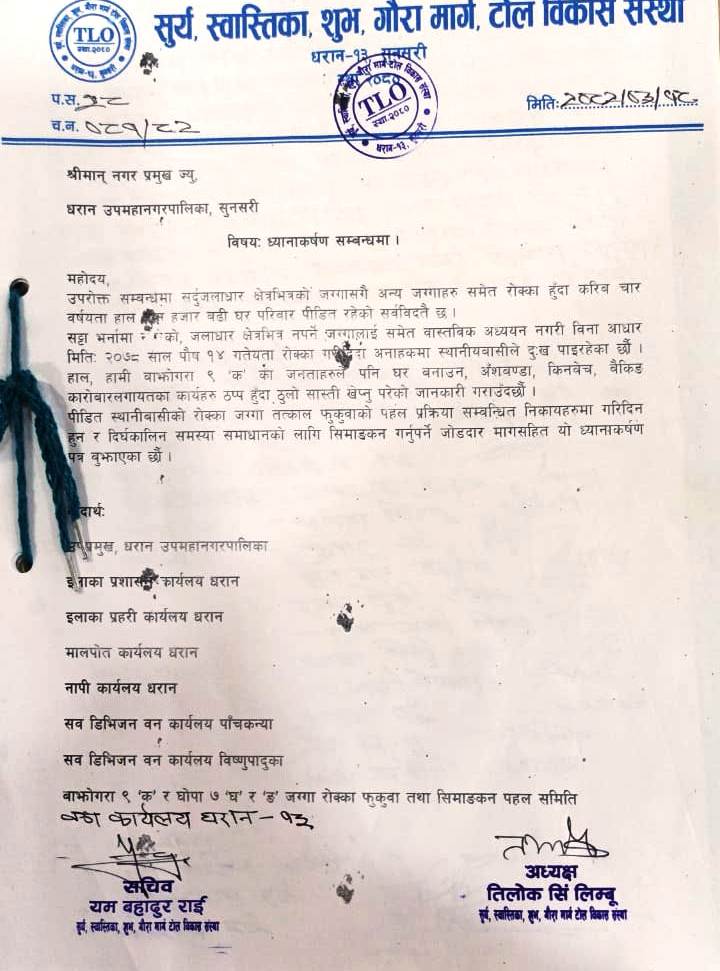 सुर्य, स्वास्तिका, शुभ, गौरा मार्ग, टोल विकास संस्था
धरान-१३, सुनसरी
TLO
स्था.२०८०
धरान-१३, सुनसरी
TLO
स्था.२०८०
धरान-१३,
प.स. १८
च.न. ०८१/८२
मितिः २०८२/०३/१८
श्रीमान् नगर प्रमुख ज्यु,
धरान उपमहानगरपालिका, सुनसरी
विषयः ध्यानाकर्षण सम्बन्धमा ।
महोदय,
उपरोक्त सम्बन्धमा सर्दुजलाधार क्षेत्रभित्रको जग्गासगै अन्य जग्गाहरु समेत रोक्का हुँदा करिब चार
वर्षयता हाल हजार बढी घर परिवार पीडित रहेको सर्वविदतै छ ।
सट्टा भर्नामा जलाधार क्षेत्रभित्र नपर्ने जग्गालाई समेत वास्तविक अध्ययन नगरी विना आधार
मितिः २०७८ साल पौष १४ गतेयता रोक्का अनाहकमा स्थानीयबासीले दुःख पाइरहेका छौं ।
हाल, हामी बाझोगरा ९ 'क' का जनताहरुले पनि घर बनाउन, अँशबण्डा, किनवेच, बैकिङ
कारोबारलगायतका कार्यहरु ठप्प हुँदा ठुलो सास्ती खेप्नु परेको जानकारी गराउँदछौं ।
पीडित स्थानीबासीको रोक्का जग्गा तत्काल फुकुवाको पहल प्रक्रिया सम्बन्धित निकायहरुमा गरिदिन
हुन र दिर्घकालिन समस्या समाधानको लागि सिमाङकन गर्नुपर्ने जोडदार मागसहित यो ध्यानाकर्षण
पत्र बुझाएका छौं ।
उपप्रमुख, धरान उपमहानगरपालिका
इलाका प्रशासन कार्यलय धरान
इलाका प्रहरी कार्यलय धरान
मालपोत कार्यलय धरान
नापी कार्यलय धरान
सव डिभिजन वन कार्यलय पाँचकन्या
सव डिभिजन वन कार्यलय विष्णुपादुका
बाझोगरा ९ 'क' र घोपा ७ 'घ' र 'ङ' जग्गा रोक्का फुकुवा तथा सिमाङकन पहल समिति
वडा कार्यलय धरान - १३
सचिव
यम बहादुर राई
सुर्य, स्वास्तिका, शुभ, गौरा मार्ग टोल विकास संस्था
अध्यक्ष
तिलोक सिं लिम्बू
सुर्य, स्वास्तिका, शुभ, गौरा मार्ग टोल विकास संस्था